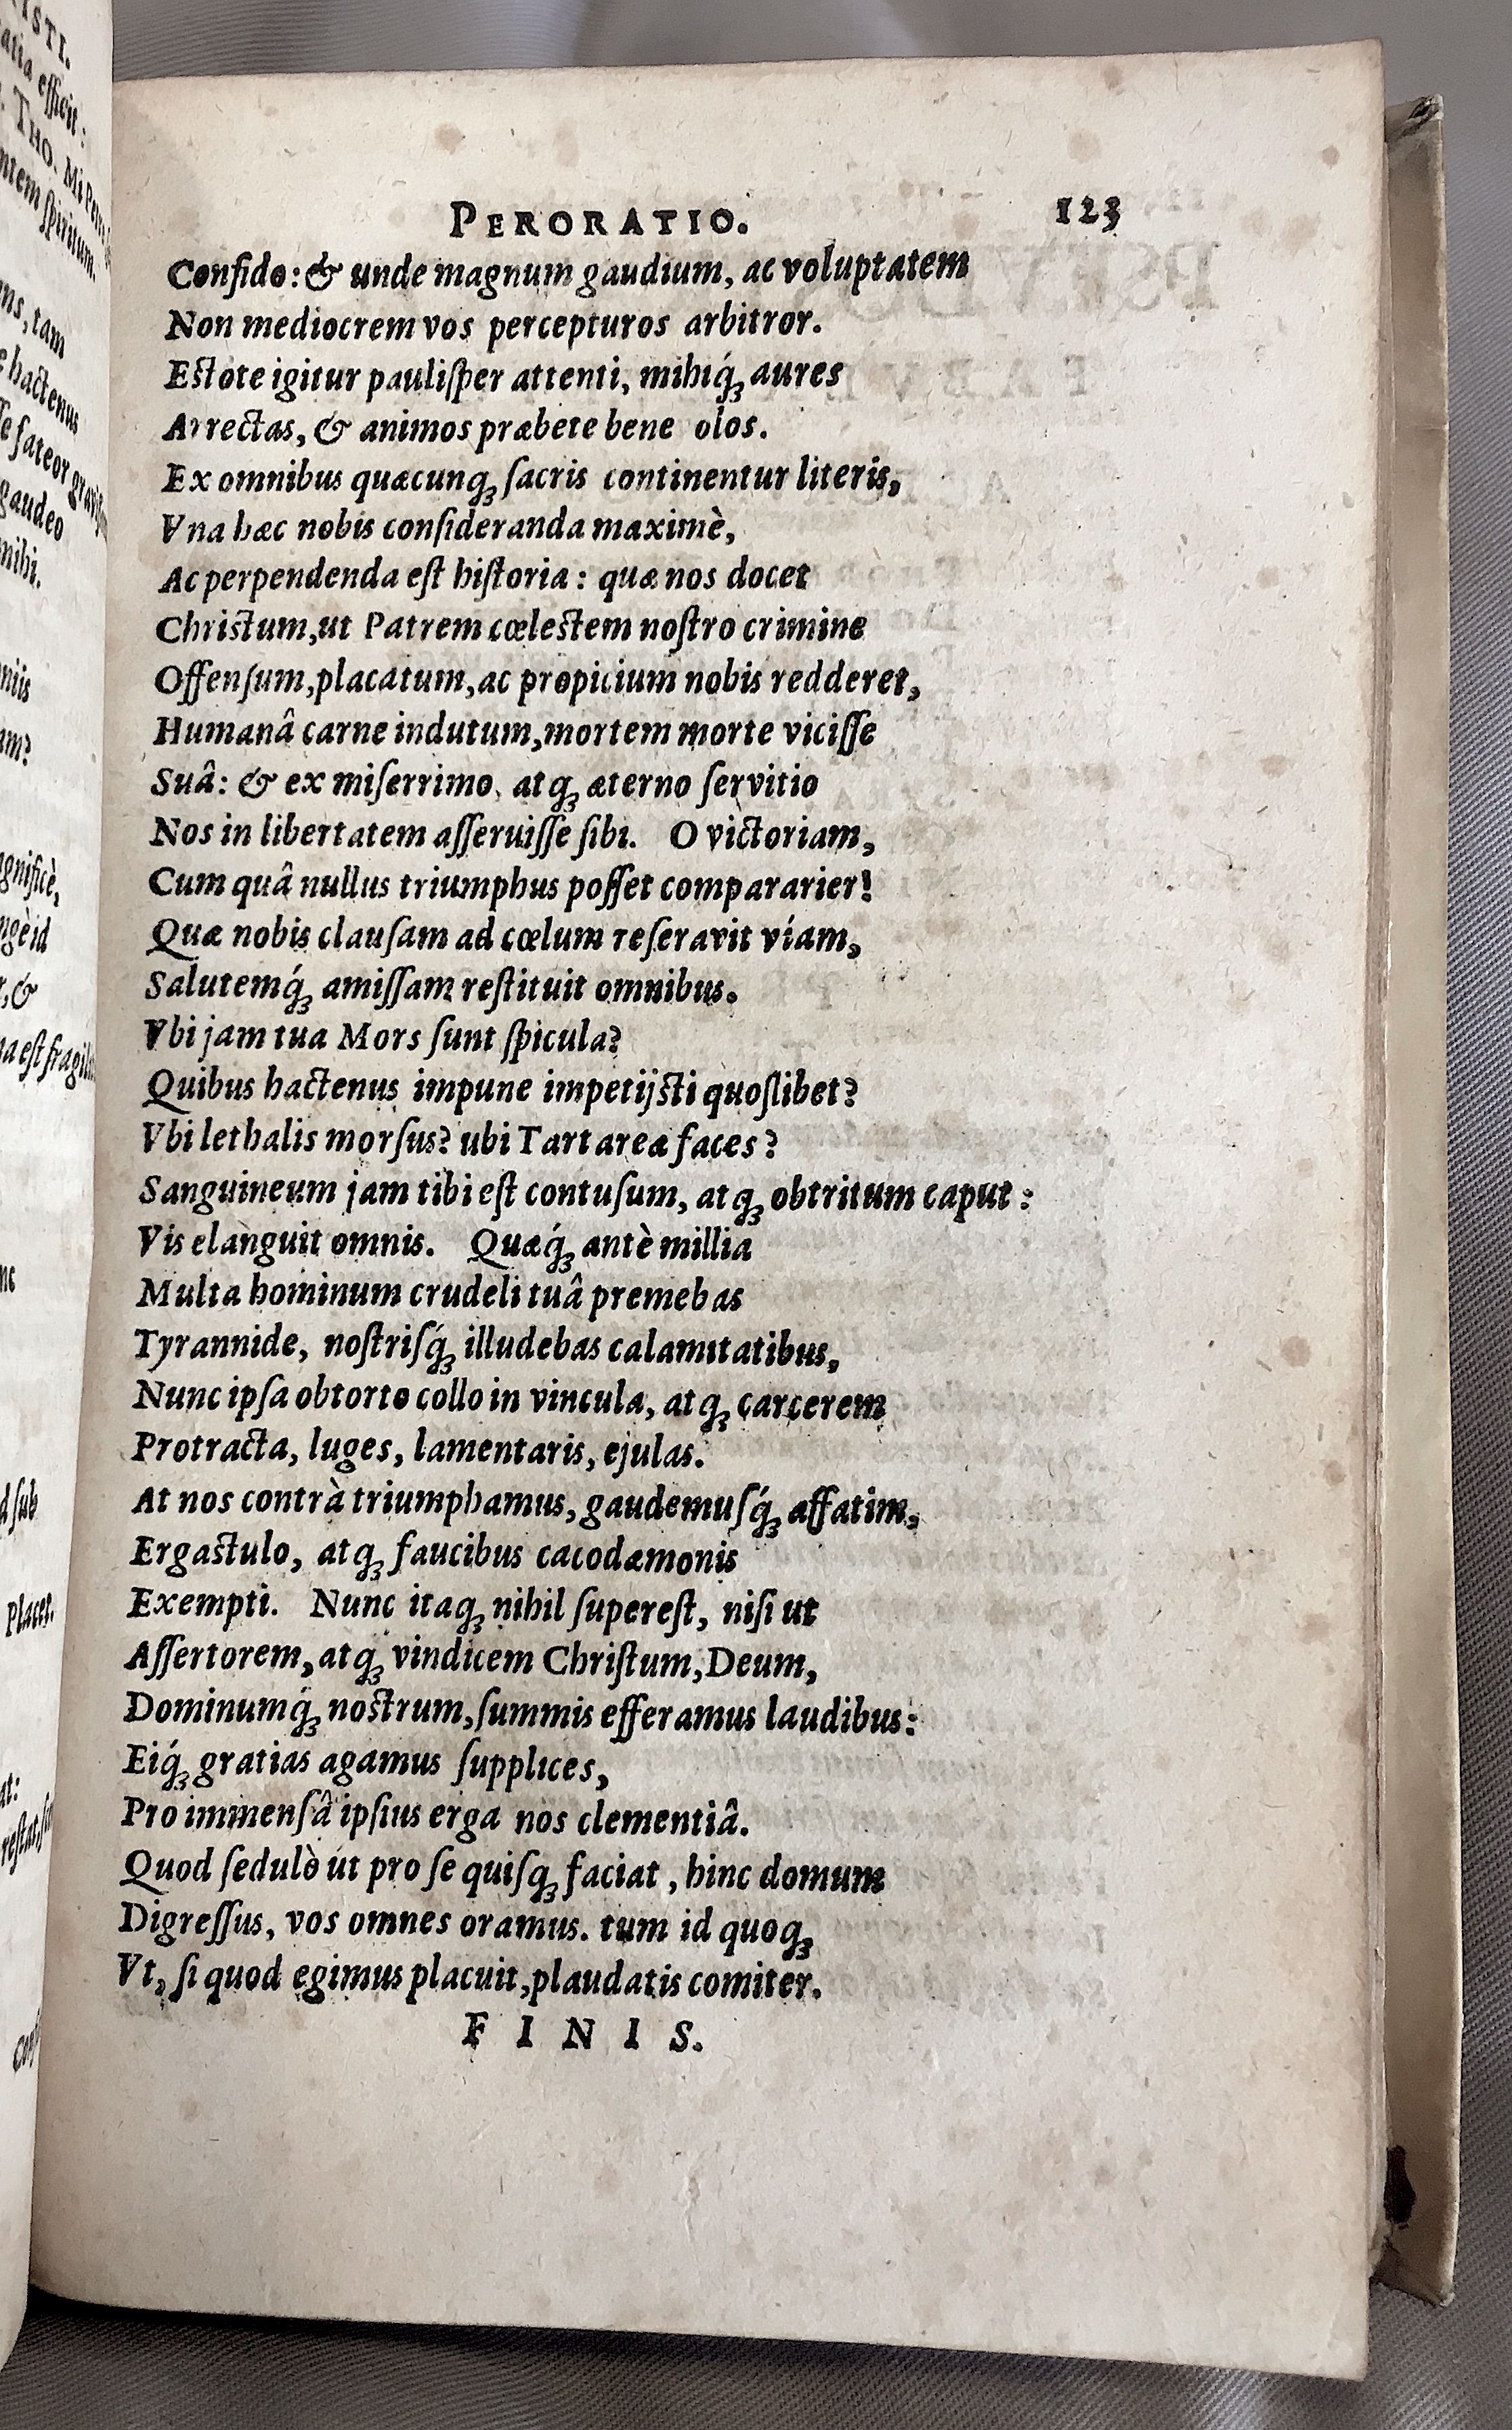 PERORATIO. 123
Confido: & unde magnum gaudium, ac voluptatem
Non mediocrem vos percepturos arbitror.
Estote igitur pauliſper attenti, mihiq́ꝫ aures
Arrectas, & animos præbete bene olos.
Ex omnibus quæcunqꝫ ſacris continentur literis,
Vna hæc nobis conſideranda maximè,
Ac perpendenda eſt hiſtoria: quæ nos docet
Christum, ut Patrem cœlestem noſtro crimine
Offenſum, placatum, ac propicium nobis redderet,
Humanâ carne indutum, mortem morte viciſſe
Suâ: & ex miſerrimo, atqꝫ æterno ſervitio
Nos in libertatem aſſeruiſſe ſibi. O victoriam,
Cum quâ nullus triumphus poſſet compararier!
Quæ nobis clauſam ad cœlum reſeravit víam,
Salutemq́ꝫ amiſſam reſtituit omnibus.
Vbi jam tua Mors ſunt ſpicula?
Quibus hactenus impune impetijsti quoſlibet?
Vbi lethalis morſus? ubi Tartareæ faces?
Sanguineum jam tibi eſt contuſum, atqꝫ obtritum caput:
Vis elanguit omnis. Quæq́ꝫ antè millia
Multa hominum crudeli tuâ premebas
Tyrannide, noſtriſq́ꝫ illudebas calamitatibus,
Nunc ipſa obtorto collo in vincula, atqꝫ carcerem
Protracta, luges, lamentaris, ejulas.
At nos contrà triumphamus, gaudemuſq́ꝫ affatim,
Ergastulo, atqꝫ faucibus cacodæmonis
Exempti. Nunc itaqꝫ nihil ſupereſt, niſi ut
Aſſertorem, atqꝫ vindicem Chriſtum, Deum,
Dominumq́ꝫ nostrum, ſummis efferamus laudibus:
Eiq́ꝫ gratias agamus ſupplices,
Pro immenſâ ipſius erga nos clementiâ.
Quod ſedulò ut pro ſe quiſqꝫ faciat, hinc domum
Digreſſus, vos omnes oramus. tum id quoqꝫ
Vt, ſi quod egimus placuit, plaudatis comiter.
FINIS.